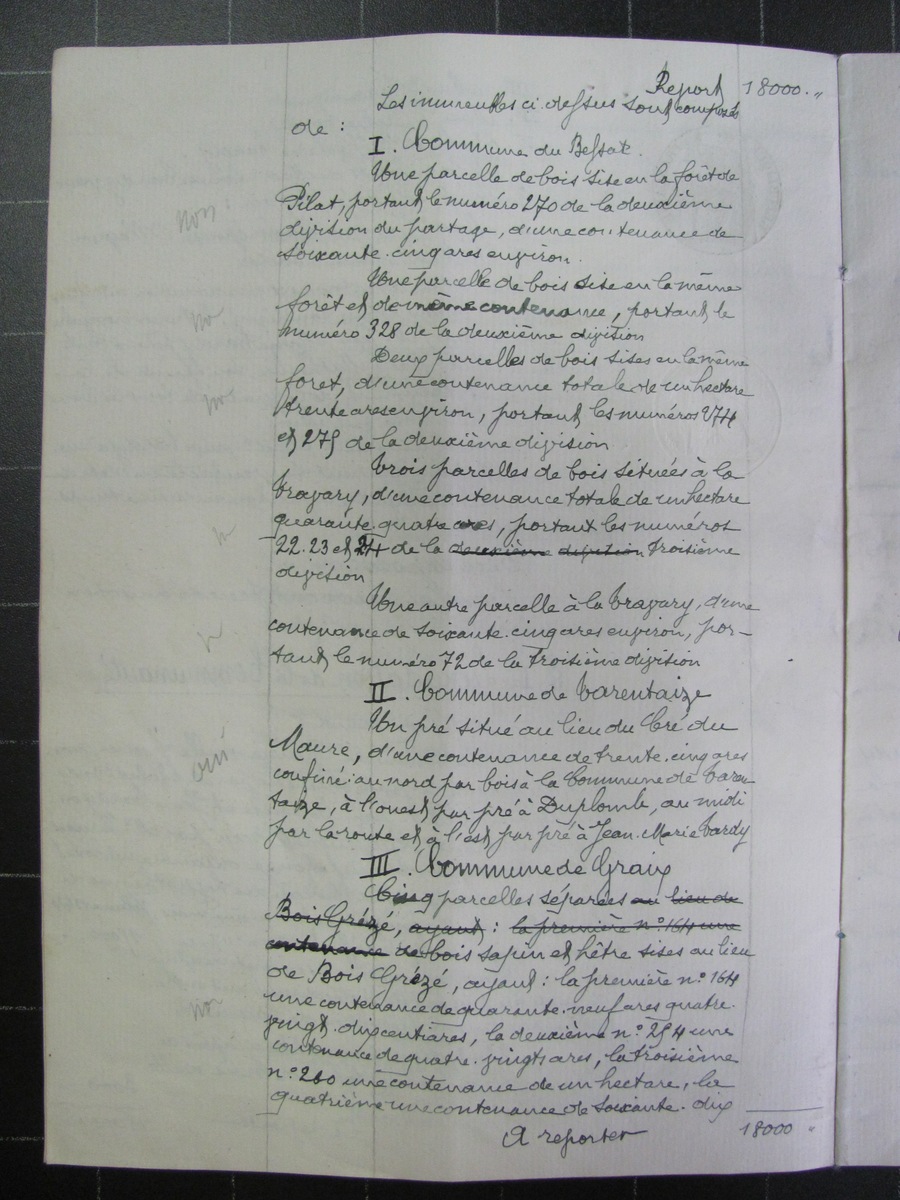 Report 18000. "
Les immeubles ci dessus sont composés
de :
I. Commune du Bessat.
Une parcelle de bois sise en la forêt de
Pilat, portant le numéro 270 de la deuxième
division du partage, d'une contenance de
soixante. cinq ares environ.
non
Une parcelle de bois sise en la même
forêt et de même contenance, portant le
numéro 328 de la deuxième division
no
Deux parcelles de bois sises en la même
foret, d'une contenance totale de un hectare
trente ares environ, portant les numéros 274
et 275 de la deuxième division
no
Trois parcelles de bois situées à la
Travary, d'une contenance totale de un hectare
quarante. quatre ares, portant les numéros
22. 23 et 24 de la deuxième division troisième
division
n
Une autre parcelle à la Travary, d'une
contenance de soixante. cinq ares environ, por-
tant le numéro 72 de la troisième division
n
II. Commune de Tarentaize
Un pré situé au lieu du Cré du
Maure, d'une contenance de trente. cinq ares
confiné: au nord par bois à la Commune de Taren
taize, à l'ouest par pré à Duplomb, au midi
par la route et à l'est par pré à Jean. Marie Tardy
oui
III. Commune de Graix
Cinq parcelles séparées au lieu de
Bois Grézé, ayant : la première n° 164 une
contenance de bois sapin et hêtre sises au lieu
de Bois Grézé, ayant : la première n° 164
une contenance de quarante. neuf ares quatre.
vingt. dix centiares, la deuxième n° 254 une
contenance de quatre. vingts ares, la troisième
n° 260 une contenance de un hectare, la
quatrième une contenance de soixante. dix
no
A reporter 18000 "